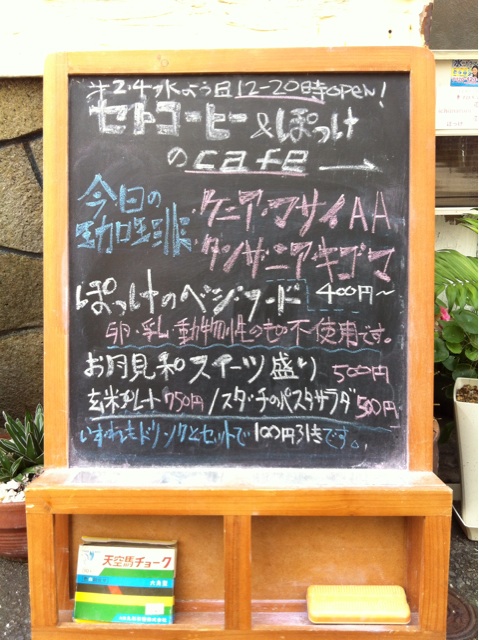 #2.4水よう日12-20時open!
セトコーヒー&ぽっけ
のcafe →
今日の
珈琲:
・ケニア・マサイAA
・タンザニアキゴマ
ぽっけのベジフード 400円〜
卵・乳・動物性のもの不使用です。
お月見和スイーツ盛り 500円
玄米プレート750円/スダチのパスタサラダ500円
いずれもドリンクとセットで100円引きです。
天空馬チョーク